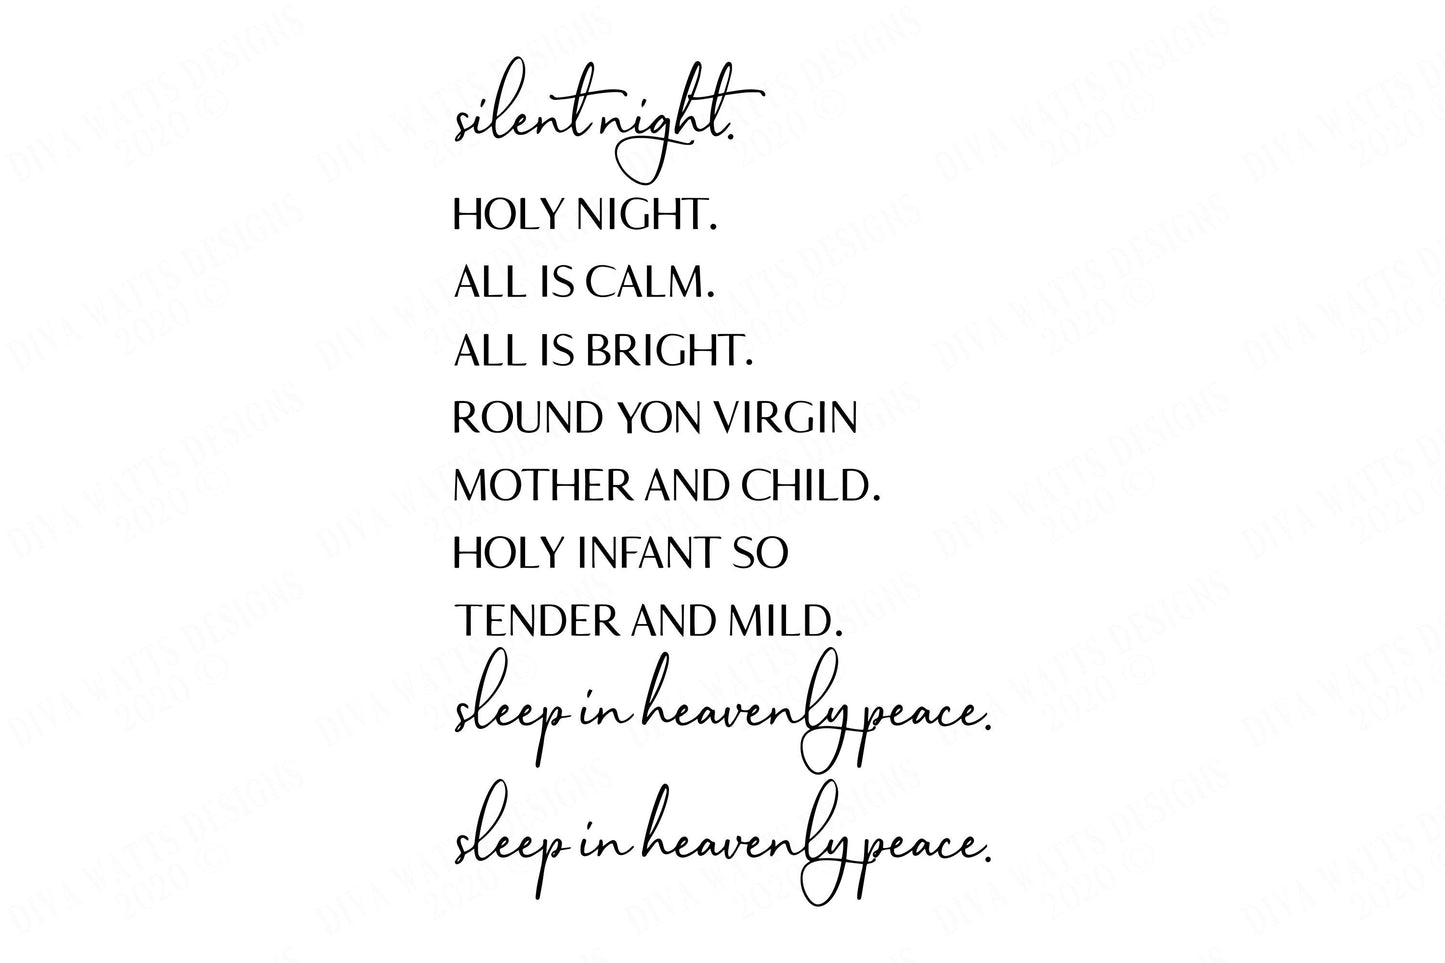 silent night.
HOLY NIGHT.
ALL IS CALM.
ALL IS BRIGHT.
ROUND YON VIRGIN
MOTHER AND CHILD.
HOLY INFANT SO
TENDER AND MILD.
sleep in heavenly peace.
sleep in heavenly peace.
DIVA WATTS DESIGNS
2020 ©